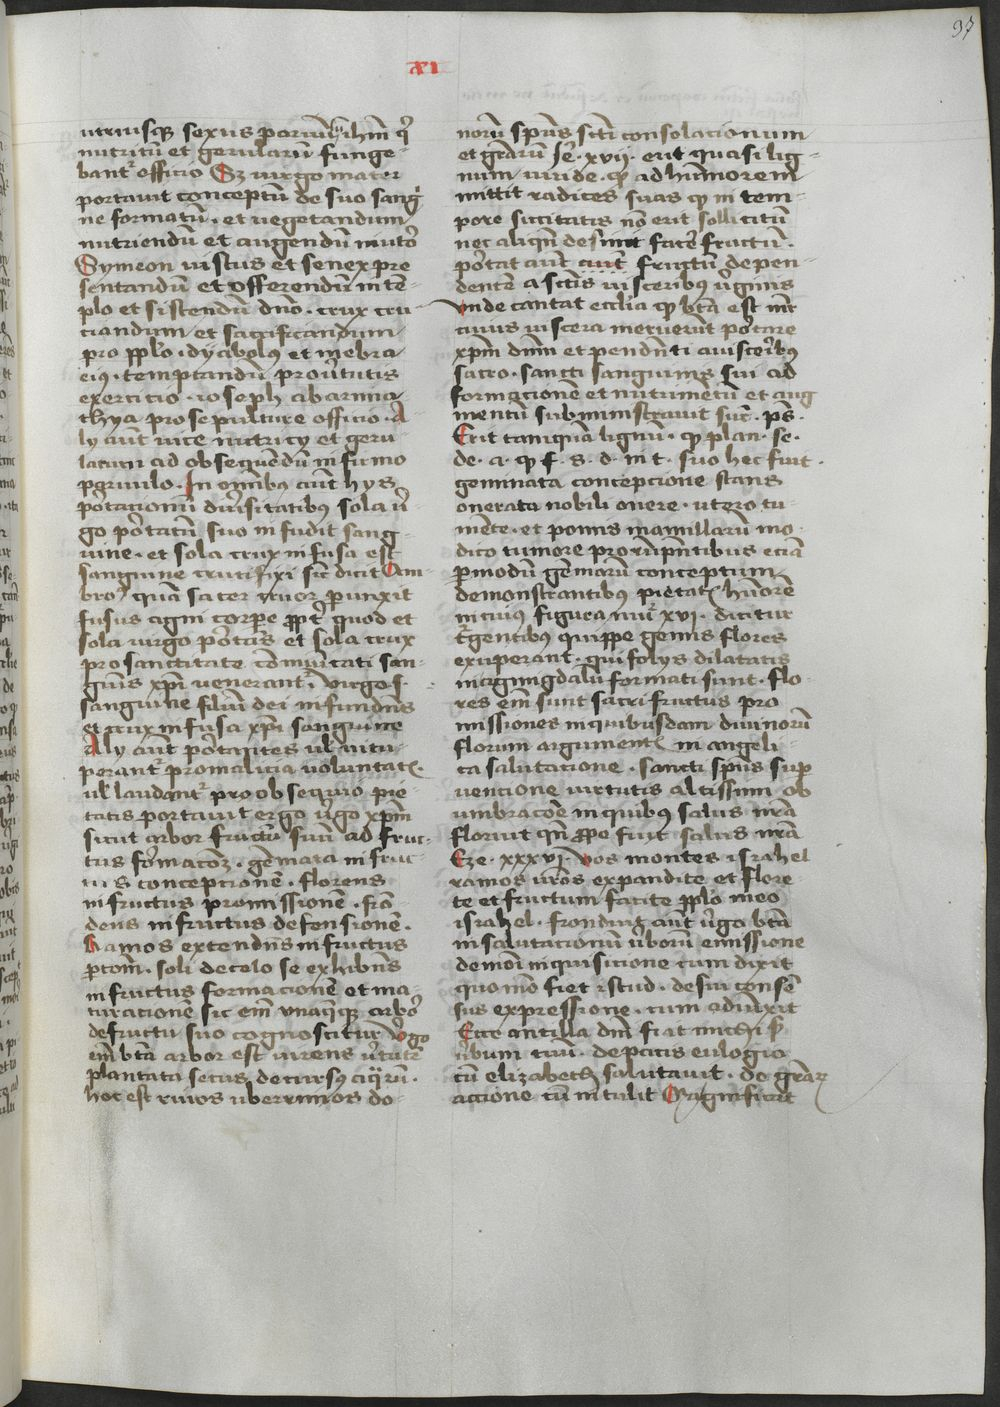 97
XI
utriusq; sexus parvul' ihm q'
nutritū et gerularū funge-
bant' officio Sz virgo mater
portavit conceptū de suo sang'
ne formatū · et vegetandum
nutriendū et augendū
Symeon iustus et senex pre
sentandū et offerendū in tē-
plo et sistendū dno · crux cru
ciandum et sacrificandum
pro pplo · dyabolus et mēbra
eius · temptandū pro v'tutis
exercicio · ioseph ab arima
thya pro sepulture officio · A
ly aut vice nutricij et geru
latury ad obsequēdū infirmo
parvulo · In omibus aut hys
portacionū diu'sitatibus sola v'
go portatū suo infudit sang-
uine · et sola crux infusa est
sanguine crucifixi sic dicit Am
bro' quā sacer cruor perunxit
fusus agni corpore ppt' quod et
sola virgo portās et sola crux
pro sanctitate
guis xpi venerant' · virgo s'
sanguine filiū dei infundens
et crux infusa xpi sanguine
Aly aut portantes ul' vitu-
perant' pro malicia voluntat' ·
ul' laudant' pro obsequio pie
tatis portavit ergo v'go xpm
sicut arbor fructū suū ad fruc-
tus formacōz · gēmata in fruc-
tus conceptionē · florens
in fructus promissionē · frō
dens in fructus defensionē ·
Ramos extendens in fructus
· soli de celo se exhibens
in fructus formacionē et ma-
turacionē sic em unaqueq; arbor
de fructu suo cognoscitur v'go
em bta arbor est virens v'tute
plantata secus decursus aquarum ·
hoc est rivos uberrimos do-
norū spūs scti consolacionum
et grarū Je · xvij · erit quasi lig-
num viride · q' ad humorem
mittit radices suas q' in tem-
pore siccitatis nō erit sollicitū
nec aliqn desinit facere fructū ·
portat aut aut fructū depen-
dentē a sctis visceribus v'ginis
Unde cantat ecclia q' bta est mr
cuius viscera meruerūt portare
xpm dnm et pendenti a visceribus
sacro-sancti sanguinis sui ad
formacionē et nutrimētū et aug
mentū subministravit suc' · ps ·
Erit tamquā lignū · q' plan · se ·
de · a · q' f · s · d · in t · suo hec fuit
geminata concepcione stans
onerata nobili onere · utero tu-
mente · et pomis mamillarū mo-
dico tumore prorumpentibus eciā
per modū gēmarū conceptum
demonstrantibus pietat' humorē
in cuius figura nu' xvi · dicitur
t'gentibus quippe gēmis flores
eruperant · qui folys dilatatis
in amigdalū formati sunt · flo-
res em sunt sacri fructus pro
missiones in quibusdam divinorū
florum argument' in angeli-
ca salutacione · sancti spūs super
vencione virtutis altissimi ob
umbracōe in quibus salus nra
floruit qn prope fuit salus nra
Eze · xxxvi · Vos montes israhel
ramos vros expandite et flore-
te et fructum facite pplo meo
israhel · fronduit aut v'go bta
in salutacionū v'borū emissione
de modi inquisicione cum dixit
quomō fiet istud · de sui consē
sus expressione · cum adiunxit
Ecce ancilla dni fiat michi s'
v'bum tuū · de pacis eulogio
cū elizabeth salutavit · de grar'
accione cū intulit Magnificat